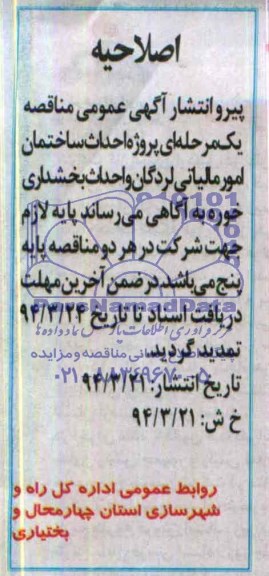 اصلاحیه
پیرو انتشار آگهی عمومی مناقصه
یک مرحله‌ای پروژه احداث ساختمان
امور مالیاتی لردگان و احداث بخشداری
به آگاهی می‌رساند پایه لازم
جهت شرکت در هر دو مناقصه پایه
پنج می‌باشد در ضمن آخرین مهلت
ParsNamadData
دریافت اسناد تا تاریخ ۹۴/۳/۲۴
تمدید گردید.
تاریخ انتشار: ۹۴/۳/۲۱
خ ش: ۹۴/۳/۲۱
روابط عمومی اداره کل راه و
شهرسازی استان چهارمحال و
بختیاری